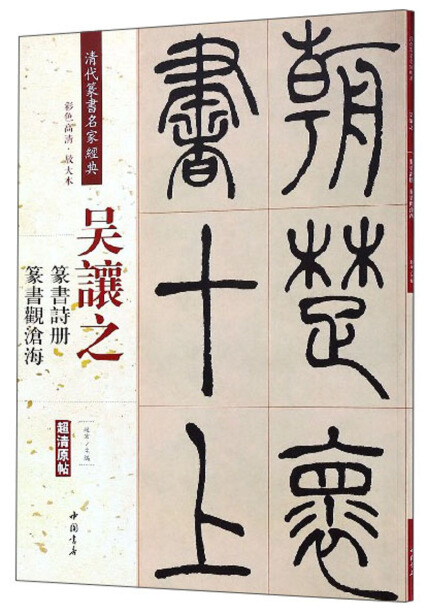 朝楚褱
書十上
清代篆書名家經典
彩色高清·放大本
吴讓之
篆書詩册
篆書觀滄海
超清原帖
中国書店